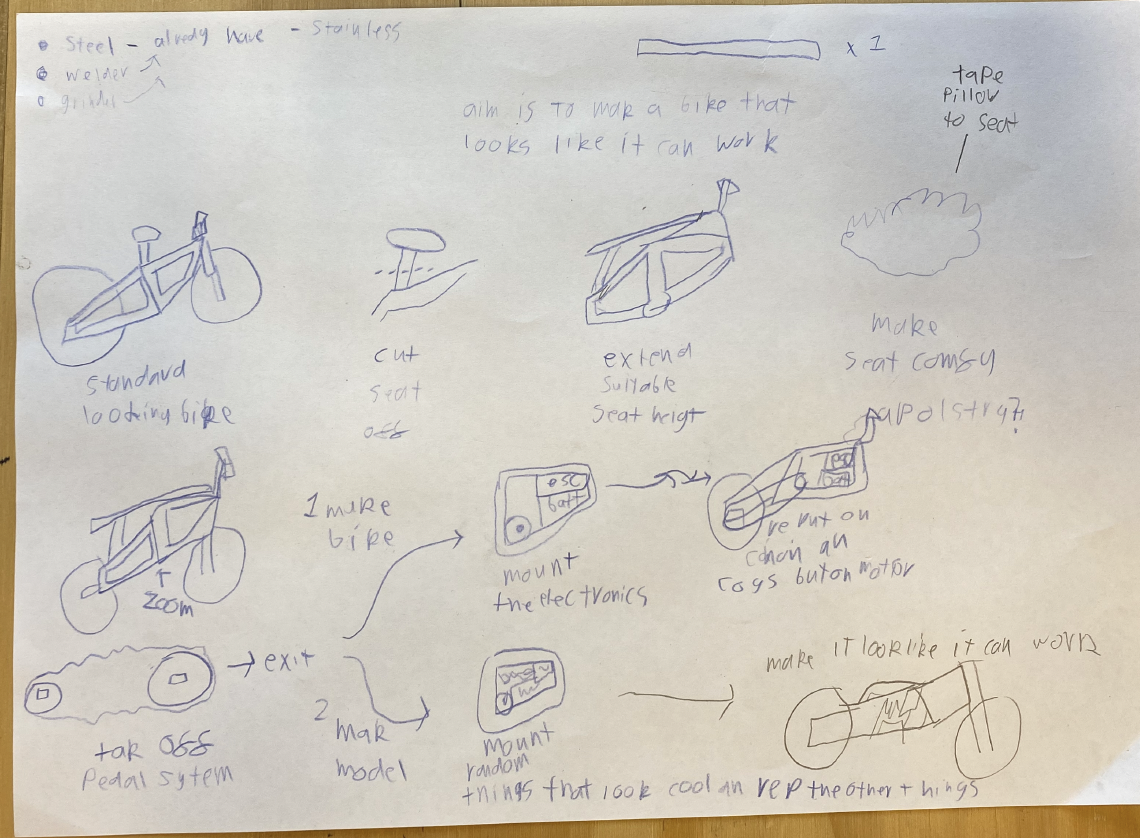 Steel - alredy have - Stainless
welder
grinder
x 1
aim is to mak a bike that
looks like it can work
tape
pillow
to seat
Standard
looking bike
cut
seat
off
extend
suitable
seat heigt
make
seat comfy
apolstry?
zoom
1 make
bike
esc
batt
mount
the electronics
esc
batt
re put on
chain an
cogs but on motor
tak off
Pedal sytem
exit
2
Mak
model
mount
random
things that look cool an rep the other things
make it look like it can work